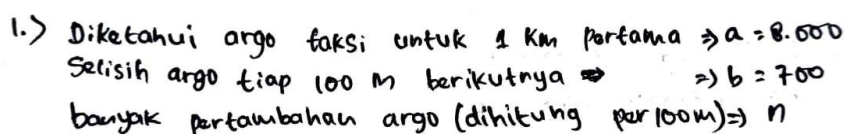 1.) Diketahui argo taksi untuk 1 Km pertama => a = 8.000
Selisih argo tiap 100 m berikutnya => => b = 700
banyak pertambahan argo (dihitung per 100m) => n